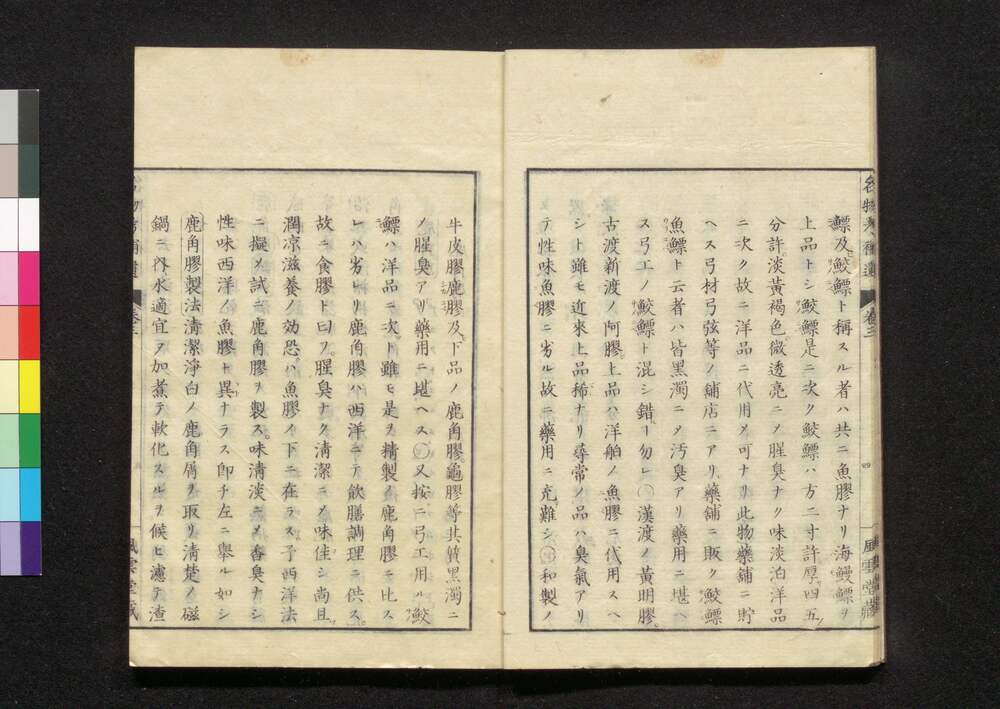 鰾及ヒ鮫鰾ト稱スル者ハ共ニ魚膠ナリ海鰻鰾ヲ
上品トシ鮫鰾是ニ次ク鮫鰾ハ方二寸許厚サ四五
分許淡黃褐色微透亮ニ〆腥臭ナク味淡泊洋品
ニ次ク故ニ洋品ニ代用〆可ナリ此物藥鋪ニ貯
ヘス弓材弓弦等ノ鋪店ニアリ藥鋪ニ販ク鮫鰾
魚鰾ト云者ハ皆黑濁ニ〆汚臭アリ藥用ニ堪ヘ
ス弓工ノ鮫鰾ト混シ錯ルヿ勿レ○漢渡ノ黃明膠
古渡新渡ノ阿膠上品ハ洋舶ノ魚膠ニ代用スヘ
シト雖モ近來上品稀ナリ尋常ノ品ハ臭氣アリ
テ性味魚膠ニ劣ル故ニ藥用ニ充難シ○和製ノ
名物考補遺 卷三
四
風雲堂藏
牛皮膠鹿膠及ヒ下品ノ鹿角膠龜膠等其質黑濁ニ
〆腥臭アリ藥用ニ堪ヘス○又按ニ弓工用ル鮫
鰾ハ洋品ニ次クト雖モ是ヲ精製ノ鹿角膠ニ比ス
レハ劣レリ鹿角膠ハ西洋ニテ飮膳調理ニ供ス
故ニ食膠ト曰フ腥臭ナク淸潔ニ〆味佳シ尚且ツ
潤凉滋養ノ効恐クハ魚膠ノ下ニ在ラス予西洋法
ニ擬〆試ニ鹿角膠ヲ製ス味淸淡ニ〆香臭ナシ
性味西洋ノ魚膠ト異ナラス即チ左ニ舉ル如シ
鹿角膠製法淸潔淨白ノ鹿角屑ヲ取リ淸楚ノ磁
鍋ニ內水適宜ヲ加煮テ軟化スルヲ候ヒ濾テ渣